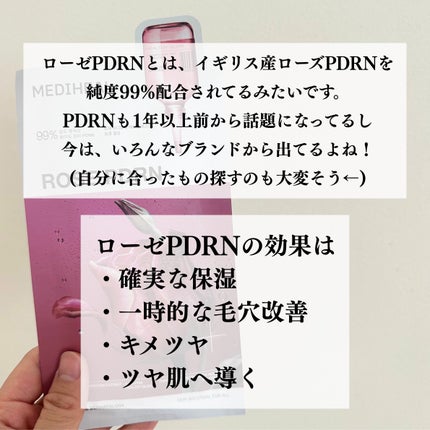 ローゼPDRNとは、イギリス産ローズPDRNを
純度99%配合されてるみたいです。
PDRNも1年以上前から話題になってるし
今は、いろんなブランドから出てるよね！
(自分に合ったもの探すのも大変そう←)
MEDIHEAL
99%
ROSE PDRN
ローゼPDRNの効果は
・確実な保湿
・一時的な毛穴改善
・キメツヤ
・ツヤ肌へ導く